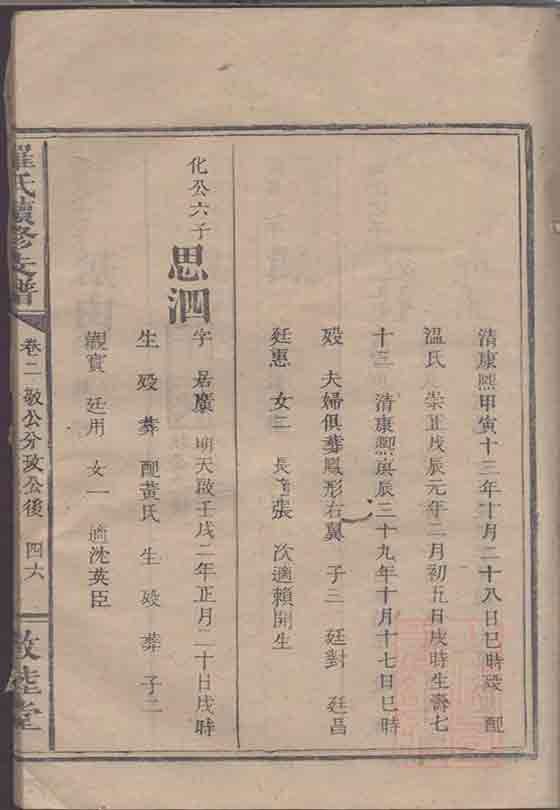 清康熙甲寅十三年十月二十八日巳時歿 配
溫氏 崇正戊辰元年二月初五日戌時生壽七
十三 清康熙庚辰三十九年十月十七日巳時
歿 夫婦俱葬鳳形右翼 子三 廷對 廷昌
廷惠 女二 長適張 次適賴開生
化公六子
思泗
字 君廣 明天啟壬戌二年正月二十日戌時
生 歿 葬 配黃氏 生 歿 葬 子二
觀寶 廷用 女一 適沈英臣
羅氏續修支譜
卷二 敬公分政公後 四六
敦睦堂